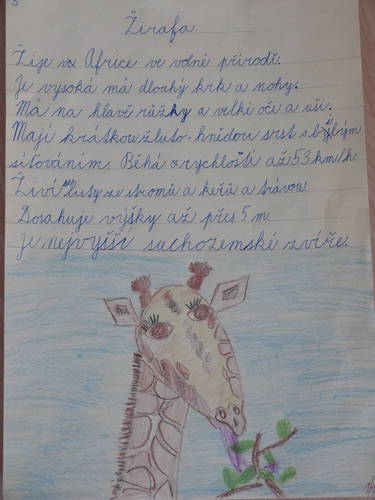 Žirafa
Žije v Africe ve volné přírodě.
Je vysoká má dlouhý krk a nohy.
Má na hlavě růžky a velké oči a uši.
Mají krátkou žluto-hnědou srst s býlým
síťováním. Běhá rychlostí až 53 km/h.
Živí se listy ze stromů a keřů a trávou
Dosahuje výšky až přes 5 m.
Je nejvyšší suchozemské zvíře.